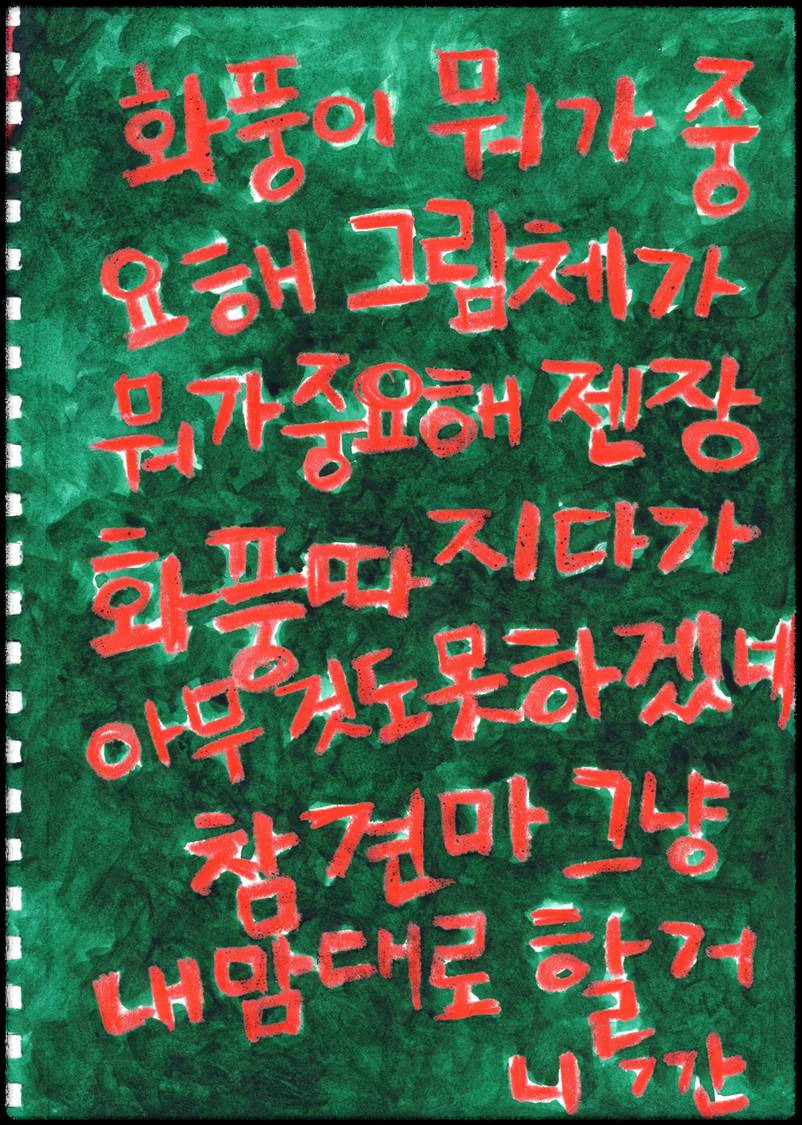 화풍이 뭐가 중
요해 그림체가
뭐가중요해 젠장
화풍따 지다가
아무것도못하겠네
참견마 그냥
내맘대로 할거
니깐